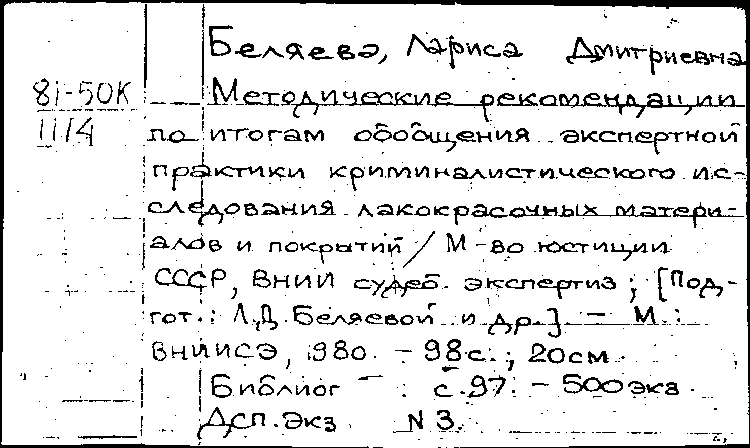 Беляева, Лариса Дмитриевна
81-50К
11/4
Методические рекомендации
по итогам обобщения экспертной
практики криминалистического ис-
следования лакокрасочных матери-
алов и покрытий / М-во юстиции
СССР, ВНИИ судеб. экспертиз ; [Под-
гот.: Л.Д. Беляевой и др.] - М. :
ВНИИСЭ, 1980. - 98с. ; 20см.
Библиог : с.97. - 500экз.
Дсп. экз N 3.